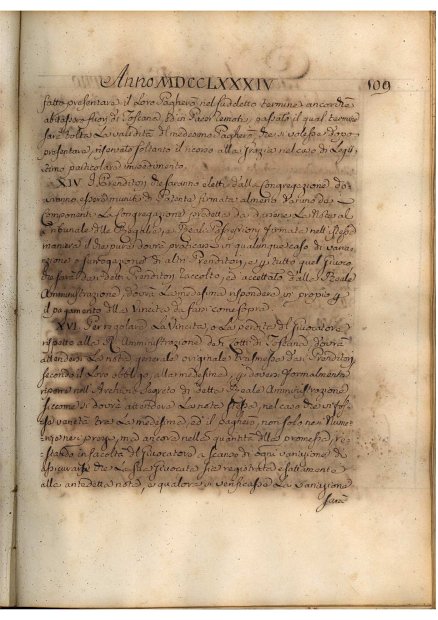 Anno MDCCLXXXIV 109
fatto presentare il Loro Pagherò nel suddetto termine ancorchè
abitassero fuori di Toscana, ed in Paesi remoti, passato il qual termine
sarà tolta La validità del medesimo Pagherò, che si volesse dopo
presentare, riservato soltanto il ricorso alla Grazia nel caso di Legit-
timo particolare impedimento.
XIV. I Prenditori che saranno eletti dalla Congregazione do-
vranno esser muniti di Patente firmata almeno da uno dei
Componenti La Congregazione predetta da darsene La Nota al
Tribunale delle Regalie, e Reali Possessioni firmata nell' istessa
maniera il che pure dovrà praticarsi in qualunque caso di varia-
zione o surrogazione di altri Prenditori, e per tutto quel giuoco
che sarà dai detti Prenditori raccolto, ed accettato dalla Reale
Amministrazione, dovrà La medesima rispondere in proprio per
il pagamento delle Vincite da farsi come sopra.
XVI. Per regolare La Vincita, o La perdita del Giuocatore
rispetto alla R. Amministrazione dei Lotti di Toscana dovrà
attendersi La nota generale originale trasmessa dai Prenditori
secondo il Loro obbligo alla medesima, per doversi formalmente
riporre nell' Archivio Segreto di detta Reale Amministrazione
siccome si dovrà attendere La nota stessa, nel caso che vi fos-
se varietà tra La medesima, ed il pagherò, non solo nei Numeri
e prezzi, ma ancora nella quantità della promessa, re-
stando in facoltà del Giuocatore a scanso di ogni variazione di
assicurarsi che La sua Giuocata sia registrata esattamente
alla antedetta nota, e qualora si verificasse La variazione
sarà